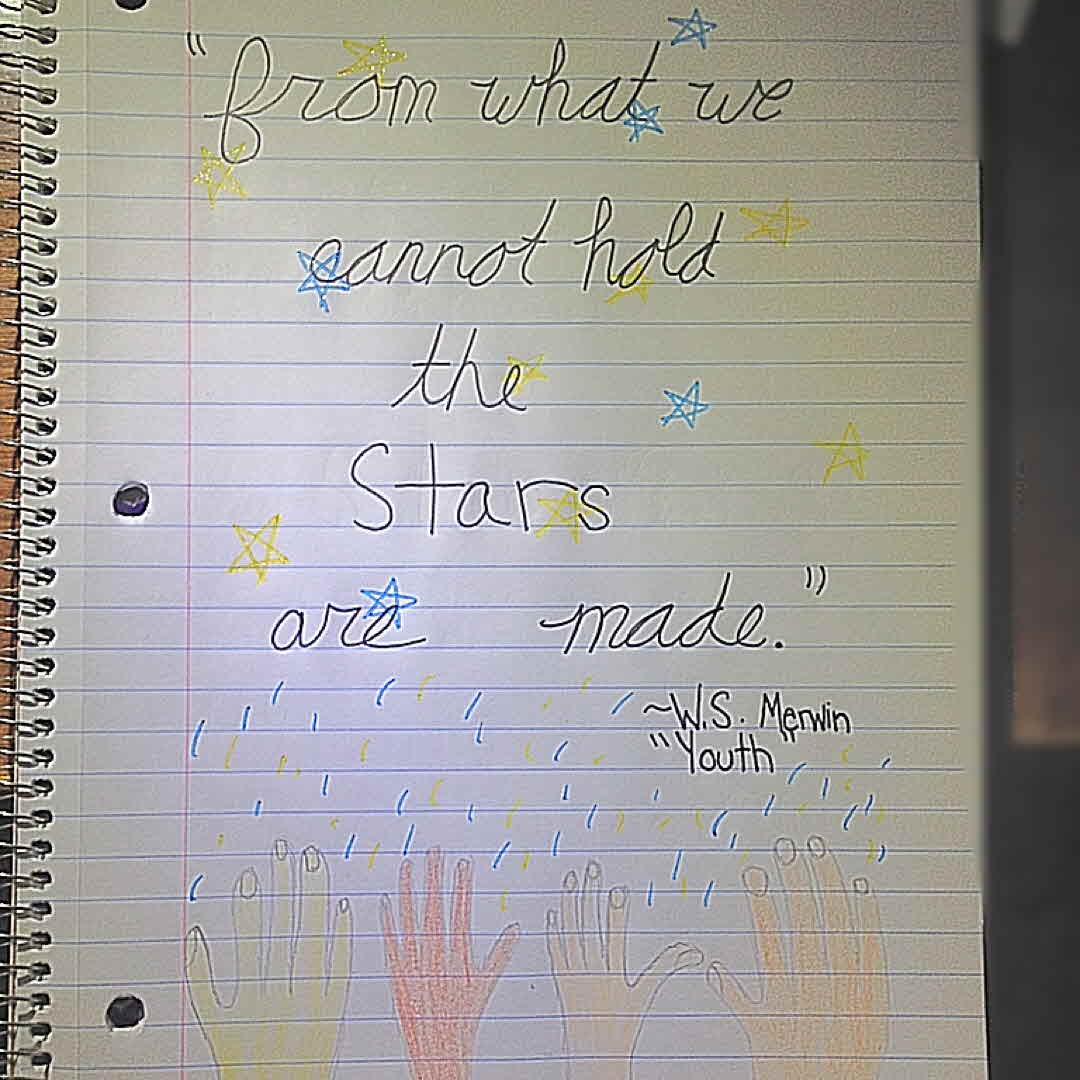 "from what we
cannot hold
the
Stars
are made."
~W.S. Merwin
"Youth"